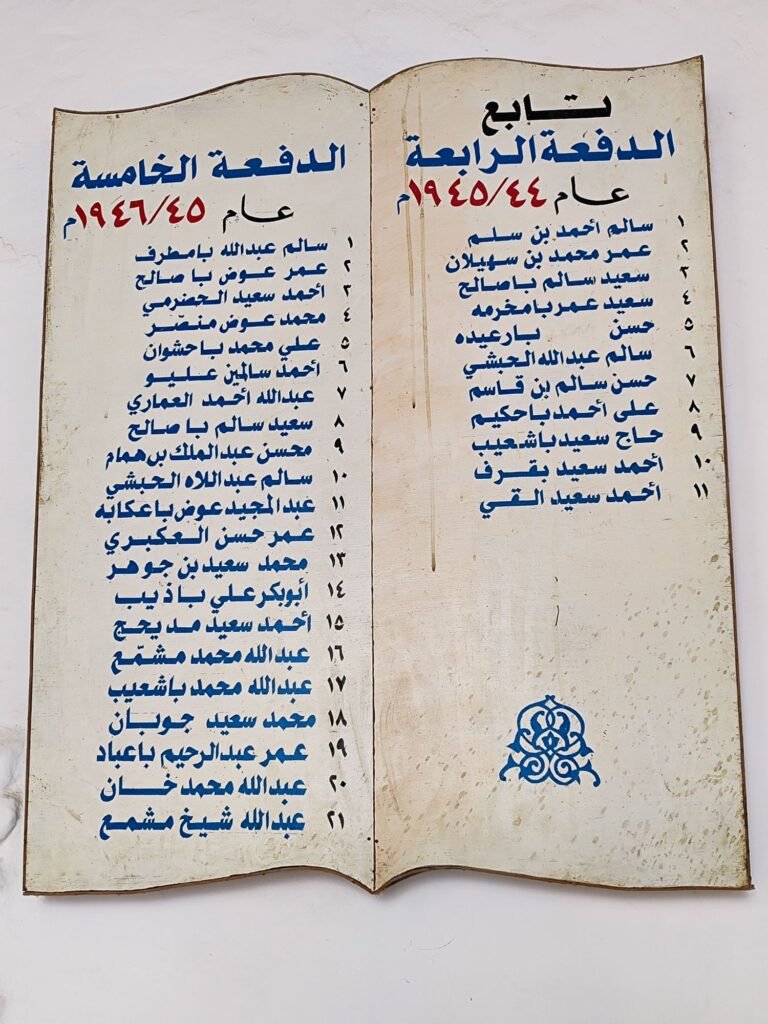 تابع
الدفعة الرابعة
عام ١٩٤٥/٤٤م
١ سالم أحمد بن سلم
٢ عمر محمد بن سهيلان
٣ سعيد سالم باصالح
٤ سعيد عمر بامخرمه
٥ حسن بارعيده
٦ سالم عبدالله الحبشي
٧ حسن سالم بن قاسم
٨ على أحمد باحكيم
٩ حاج سعيد باشعيب
١٠ أحمد سعيد بقرف
١١ أحمد سعيد القي
الدفعة الخامسة
عام ١٩٤٦/٤٥م
١ سالم عبدالله بامطرف
٢ عمر عوض باصالح
٣ أحمد سعيد الحضرمي
٤ محمد عوض منصّر
٥ علي محمد باحشوان
٦ أحمد سالمين عليو
٧ عبدالله أحمد العماري
٨ سعيد سالم باصالح
٩ محسن عبدالملك بن همام
١٠ سالم عبداللاه الحبشي
١١ عبدالمجيد عوض باعكابه
١٢ عمر حسن العكبري
١٣ محمد سعيد بن جوهر
١٤ أبوبكر علي باذيب
١٥ أحمد سعيد مديحج
١٦ عبدالله محمد مشمّع
١٧ عبدالله محمد باشعيب
١٨ محمد سعيد جوبان
١٩ عمر عبدالرحيم باعباد
٢٠ عبدالله محمد خان
٢١ عبدالله شيخ مشمع